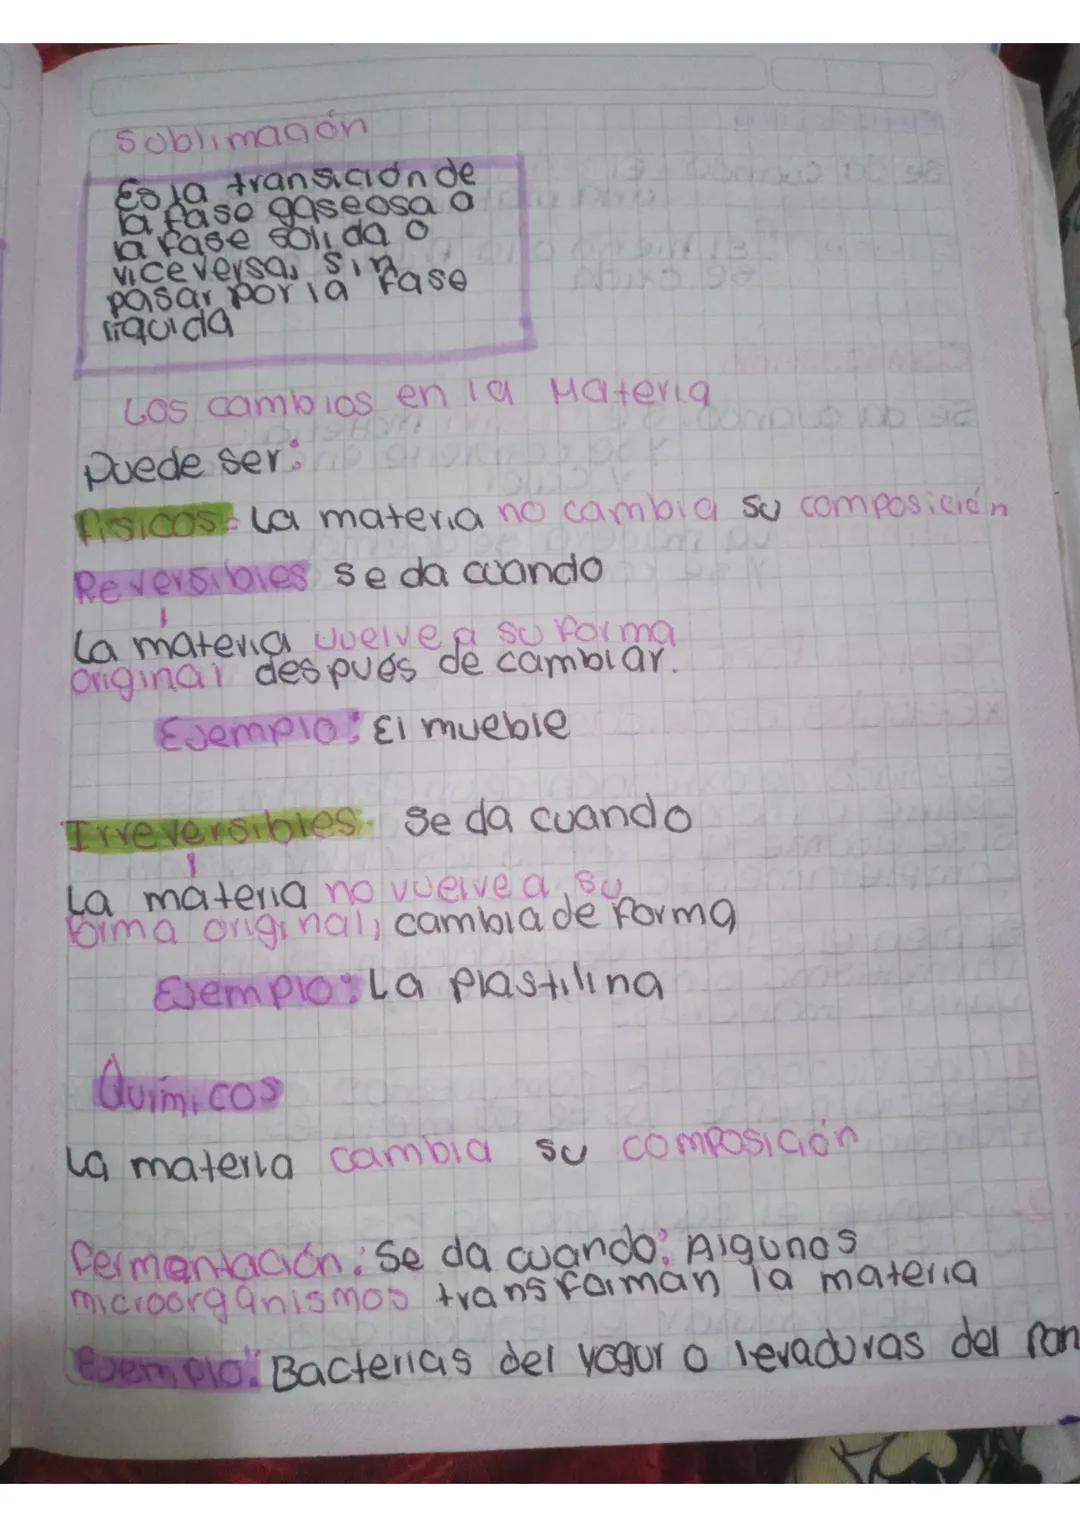 Sublimación
Es la transición de
la fase gaseosa a
la fase sólida o
viceversa, sin
pasar por la fase
líquida
Los cambios en la Materia
puede ser:
físicos: La materia no cambia su composición
Reversibles se da cuando
La materia vuelve a su forma
original después de cambiar.
Ejemplo: El mueble
Irreversibles. se da cuando
La materia no vuelve a su
forma original, cambia de forma
Ejemplo: La plastilina
Químicos
La materia cambia su composición
Fermentación: Se da cuando: Algunos
microorganismos transforman la materia
Ejemplo: Bacterias del yogur o levaduras del pan